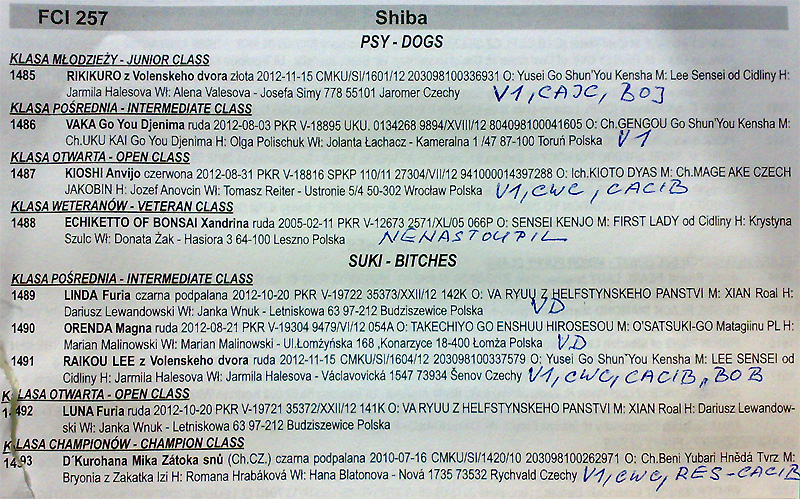 FCI 257 Shiba
PSY - DOGS
KLASA MŁODZIEŻY - JUNIOR CLASS
1485 RIKIKURO z Volenskeho dvora złota 2012-11-15 CMKU/SI/1601/12 203098100336931 O: Yusei Go Shun'You Kensha M: Lee Sensei od Cidliny H:
Jarmila Halesova Wł: Alena Valesova - Josefa Simy 778 55101 Jaromer Czechy V1, CAJC, BOJ
KLASA POŚREDNIA - INTERMEDIATE CLASS
1486 VAKA Go You Djenima ruda 2012-08-03 PKR V-18895 UKU. 0134268 9894/XVIII/12 804098100041605 O: Ch.GENGOU Go Shun'You Kensha M:
Ch.UKU KAI Go You Djenima H: Olga Polischuk Wł: Jolanta Łachacz - Kameralna 1 /47 87-100 Toruń Polska V1
KLASA OTWARTA - OPEN CLASS
1487 KIOSHI Anvijo czerwona 2012-08-31 PKR V-18816 SPKP 110/11 27304/VII/12 941000014397288 O: Ich.KIOTO DYAS M: Ch.MAGE AKE CZECH
JAKOBIN H: Jozef Anovcin Wł: Tomasz Reiter - Ustronie 5/4 50-302 Wrocław Polska V1, CWC, CACIB
KLASA WETERANÓW - VETERAN CLASS
1488 ECHIKETTO OF BONSAI Xandrina ruda 2005-02-11 PKR V-12673 2571/XL/05 066P O: SENSEI KENJO M: FIRST LADY od Cidliny H: Krystyna
Szulc Wł: Donata Żak - Hasiora 3 64-100 Leszno Polska NENASTOUPIL
SUKI - BITCHES
KLASA POŚREDNIA - INTERMEDIATE CLASS
1489 LINDA Furia czarna podpalana 2012-10-20 PKR V-19722 35373/XXII/12 142K O: VA RYUU Z HELFSTYNSKEHO PANSTVI M: XIAN Roal H:
Dariusz Lewandowski Wł: Janka Wnuk - Letniskowa 63 97-212 Budziszewice Polska VD
1490 ORENDA Magna ruda 2012-08-21 PKR V-19304 9479/VI/12 054A O: TAKECHIYO GO ENSHUU HIROSESOU M: O'SATSUKI-GO Matagiinu PL H:
Marian Malinowski Wł: Marian Malinowski - Ul.Łomżyńska 168 ,Konarzyce 18-400 Łomża Polska VD
1491 RAIKOU LEE z Volenskeho dvora ruda 2012-11-15 CMKU/SI/1604/12 203098100337579 O: Yusei Go Shun'You Kensha M: LEE SENSEI od
Cidliny H: Jarmila Halesova Wł: Jarmila Halesova - Václavovická 1547 73934 Šenov Czechy V1, CWC, CACIB, BOB
KLASA OTWARTA - OPEN CLASS
1492 LUNA Furia ruda 2012-10-20 PKR V-19721 35372/XXII/12 141K O: VA RYUU Z HELFSTYNSKEHO PANSTVI M: XIAN Roal H: Dariusz Lewandow-
ski Wł: Janka Wnuk - Letniskowa 63 97-212 Budziszewice Polska
KLASA CHAMPIONÓW - CHAMPION CLASS
1493 D´Kurohana Mika Zátoka snů (Ch.CZ.) czarna podpalana 2010-07-16 CMKU/SI/1420/10 203098100262971 O: Ch.Beni Yubari Hnědá Tvrz M:
Bryonia z Zakatka Izi H: Romana Hrabáková Wł: Hana Blatonova - Nová 1735 73532 Rychvald Czechy V1, CWC, RES-CACIB